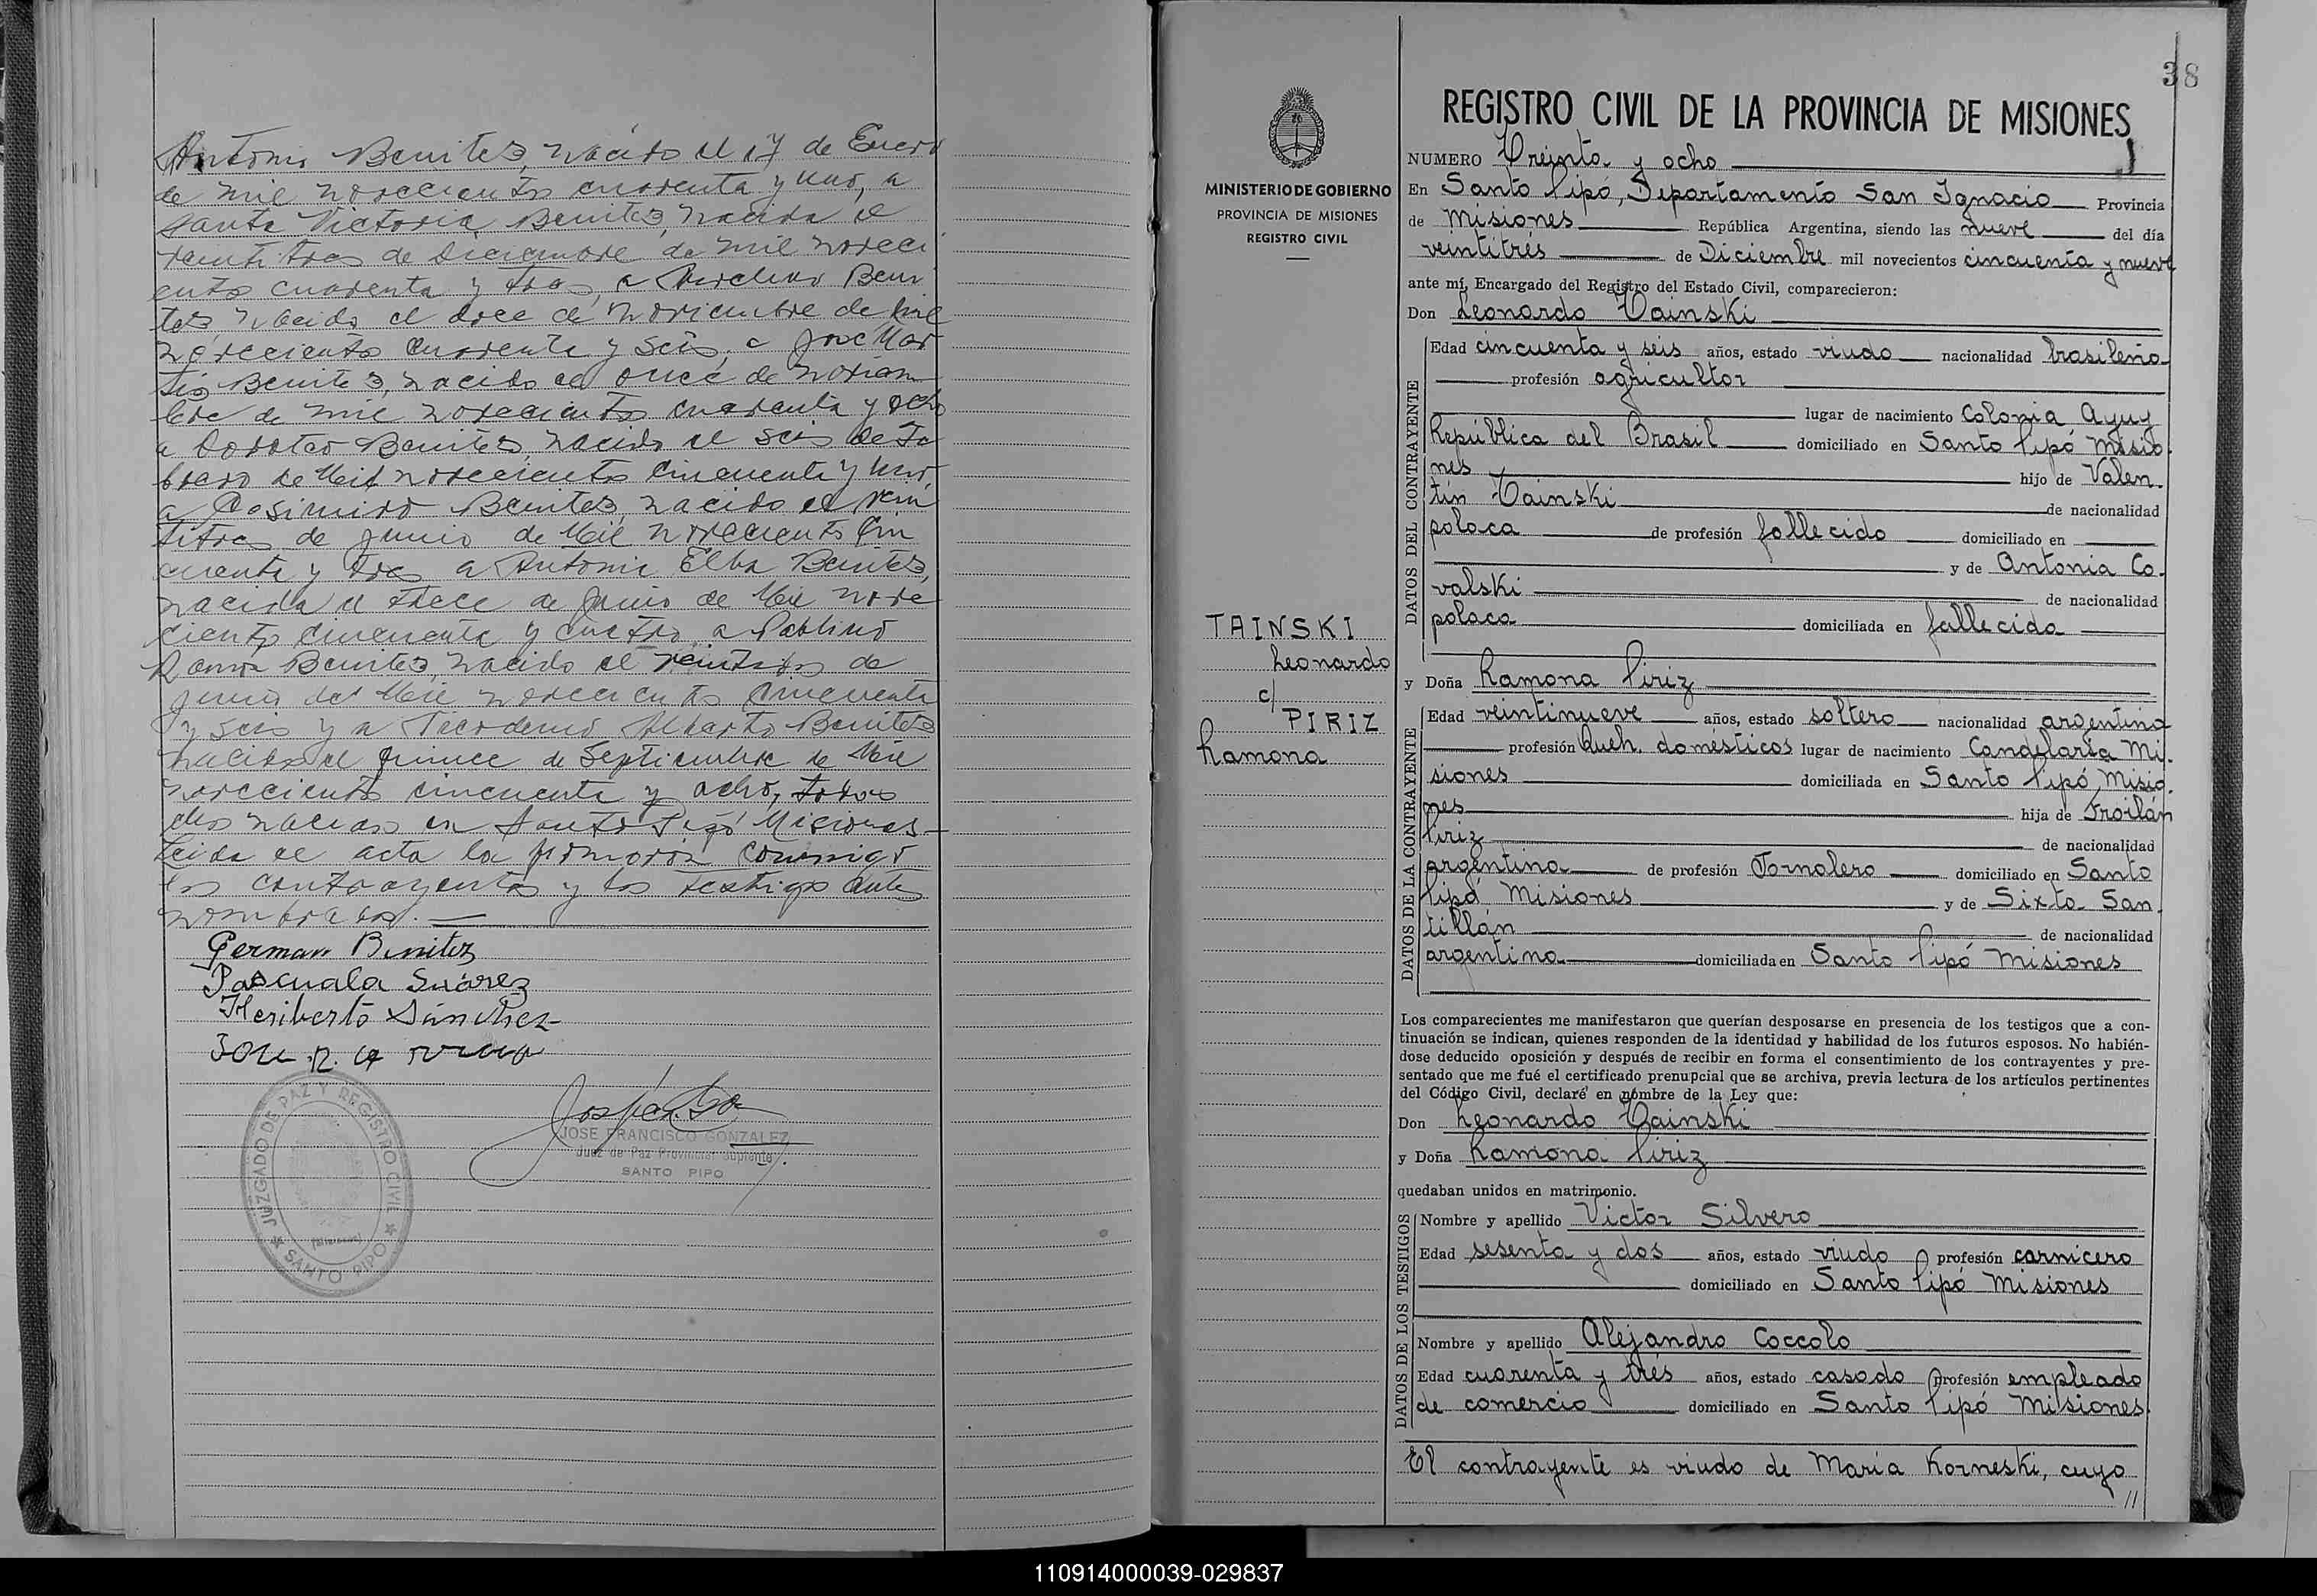 Antonio Benites, nacido el 17 de Enero
de mil novecientos cuarenta y uno, a
Santa Victoria Benites, nacida el
veintitres de Diciembre de mil noveci
entos cuarenta y tres, a Benites
nacido el doce de Noviembre de mil
novecientos cuarenta y seis, a José Mar
Benites, nacido el once de Noviem
bre de mil novecientos cuarenta y ocho
a Doroteo Benites, nacido el seis de Fe
brero de Mil novecientos cincuenta y uno,
a Casimiro Benites, nacido el vein
titres de Junio de Mil novecientos cin
cuenta y tres, a Antonia Elba Benites,
nacida el trece de Junio de Mil nove
cientos cincuenta y cuatro, a Pablino
Ramon Benites, nacido el de
Junio de Mil novecientos cincuenta
y seis y a Nicodemo Alberto Benites
nacido el quince de Septiembre de Mil
novecientos cincuenta y ocho, todos
ellos nacidos en Santo Pipó Misiones.
Leida el acta la firmaron conmigo
los contrayentes y los testigos antes
nombrados.
German Benitez
Pascuala Suárez
Heriberto Sánchez
JUZGADO DE PAZ Y REGISTRO CIVIL
SANTO PIPO
JOSE FRANCISCO GONZALEZ
Juez de Paz Provincial Suplente
SANTO PIPO
38
MINISTERIO DE GOBIERNO
PROVINCIA DE MISIONES
REGISTRO CIVIL
TAINSKI
Leonardo
c/
PIRIZ
Ramona
REGISTRO CIVIL DE LA PROVINCIA DE MISIONES
NUMERO Treinta y ocho
En Santo Pipó, Departamento San Ignacio Provincia
de Misiones República Argentina, siendo las nueve del día
veintitrés de Diciembre mil novecientos cincuenta y nueve
ante mí, Encargado del Registro del Estado Civil, comparecieron:
Don Leonardo Tainski
DATOS DEL CONTRAYENTE
Edad cincuenta y seis años, estado viudo nacionalidad brasileña
profesión agricultor
lugar de nacimiento Colonia Ayuy
República del Brasil domiciliado en Santo Pipó Misio
nes hijo de Valen-
tín Tainski de nacionalidad
polaca de profesión fallecido domiciliado en
y de Antonia Co-
valski de nacionalidad
polaca domiciliada en fallecida
y Doña Ramona Piriz
DATOS DE LA CONTRAYENTE
Edad veintinueve años, estado soltera nacionalidad argentina
profesión Queh. domésticos lugar de nacimiento Candelaria Mi-
siones domiciliada en Santo Pipó, Misio-
nes hija de Troilán
Piriz de nacionalidad
argentina de profesión Jornalero domiciliado en Santo
Pipó Misiones y de Sixta San-
tillán de nacionalidad
argentina domiciliada en Santo Pipó Misiones
Los comparecientes me manifestaron que querían desposarse en presencia de los testigos que a con-
tinuación se indican, quienes responden de la identidad y habilidad de los futuros esposos. No habién-
dose deducido oposición y después de recibir en forma el consentimiento de los contrayentes y pre-
sentado que me fué el certificado prenupcial que se archiva, previa lectura de los artículos pertinentes
del Código Civil, declaré en nombre de la Ley que:
Don Leonardo Tainski
y Doña Ramona Piriz
quedaban unidos en matrimonio.
DATOS DE LOS TESTIGOS
Nombre y apellido Victor Silvero
Edad sesenta y dos años, estado viudo profesión carnicero
domiciliado en Santo Pipó Misiones
Nombre y apellido Alejandro Coccolo
Edad cuarenta y trés años, estado casado profesión empleado
de comercio domiciliado en Santo Pipó Misiones
El contrayente es viudo de María Korneski, cuyo
//
110914000039-029837